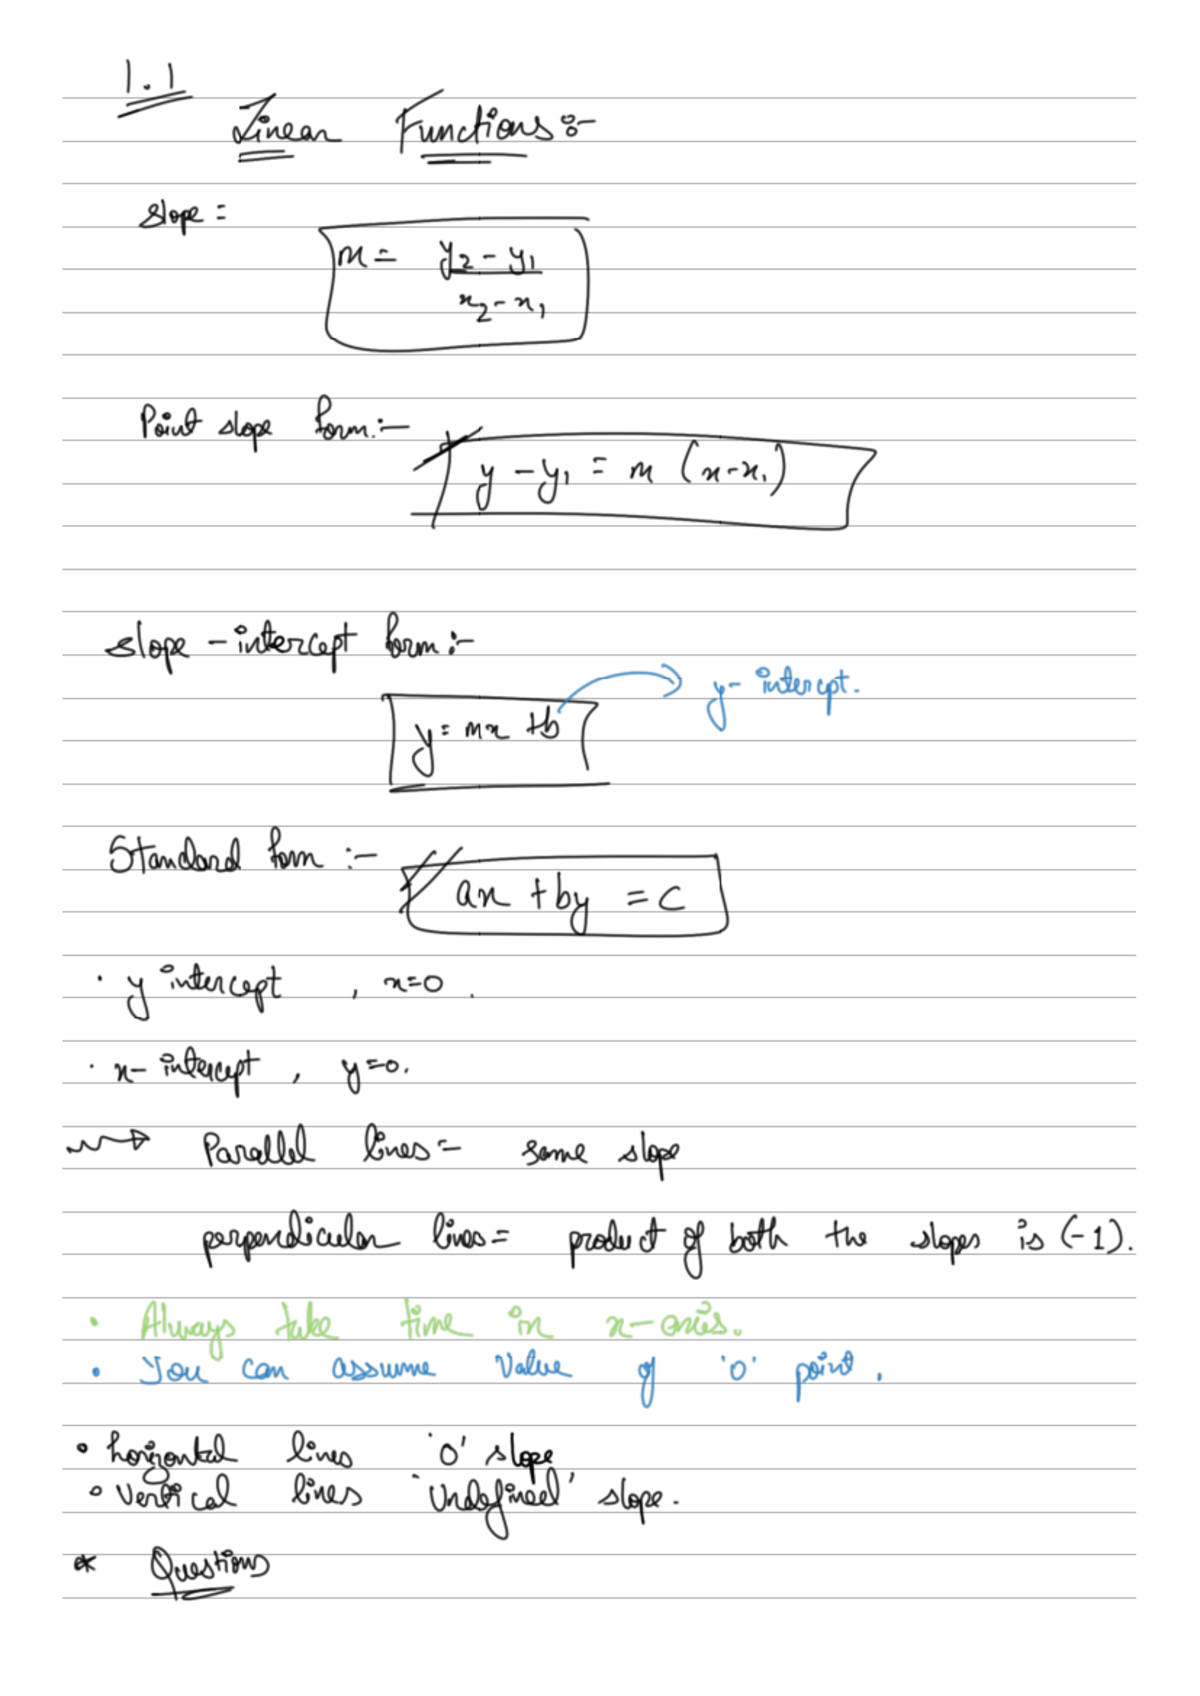 1.1
Linear Functions:-
slope =
m = y₂ - y₁
x₂ - x₁
Point slope form:-
y - y₁ = m (x - x₁)
slope - intercept form:-
y - intercpt.
y = mx + b
Standard form :-
ax + by = c
· y intercept , x=0 .
· x- intercept , y=0.
Parallel lines = same slope
perpendicular lines = product of both the slopes is (-1).
· Always take time in x-axis.
· You can assume value of '0' point.
• horizontal lines '0' slope
• Vertical lines 'Undefined' slope.
* Questions